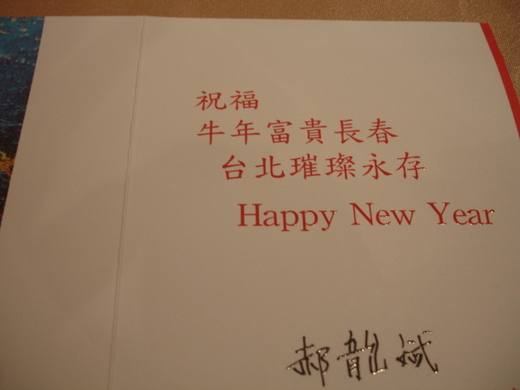 祝福
牛年富貴長春
台北璀璨永存
Happy New Year
郝龍斌